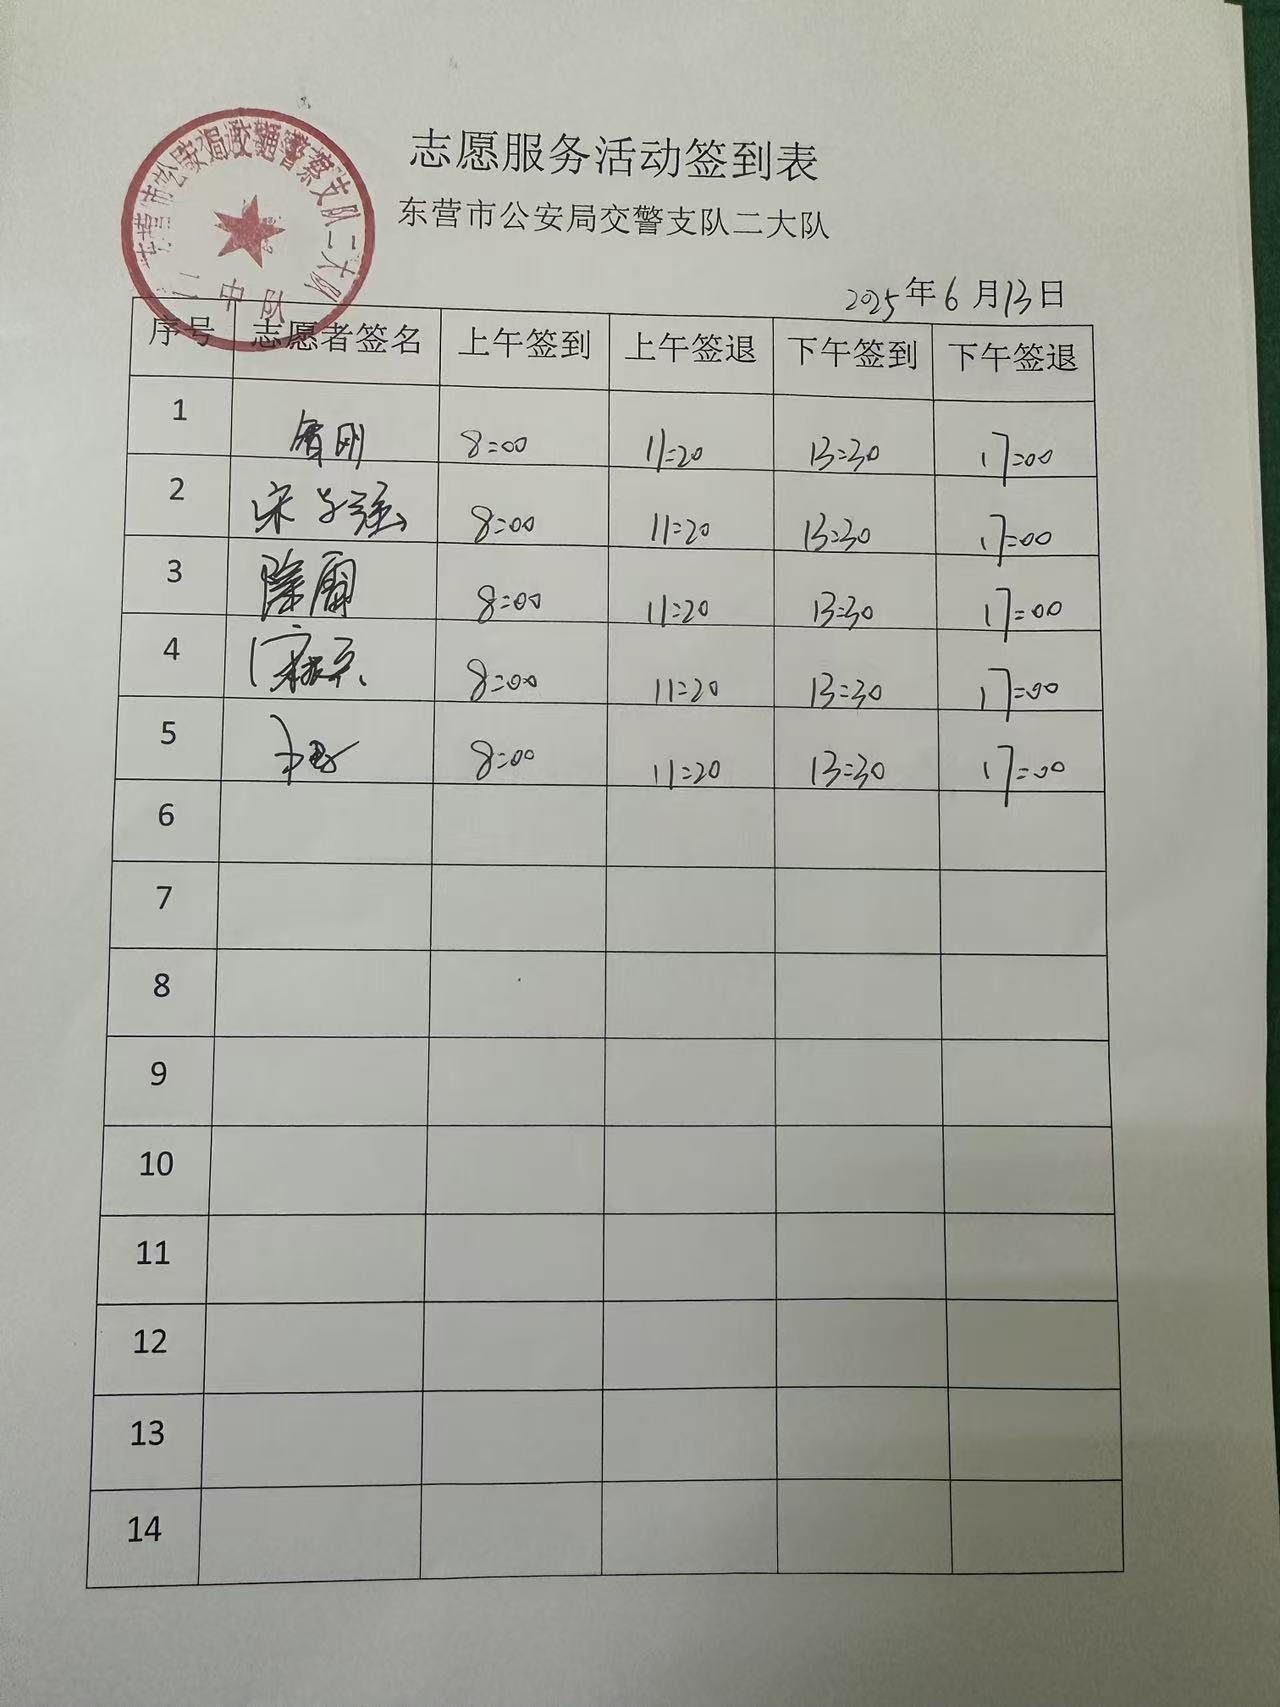 东营市公安局交通警察支队二大队
二中队
志愿服务活动签到表
东营市公安局交警支队二大队
2025年6月13日
序号 志愿者签名 上午签到 上午签退 下午签到 下午签退
1 8:00 11:20 13:30 17:00
2 宋 强 8:00 11:20 13:30 17:00
3 8:00 11:20 13:30 17:00
4 8:00 11:20 13:30 17:00
5 8:00 11:20 13:30 17:00
6
7
8
9
10
11
12
13
14